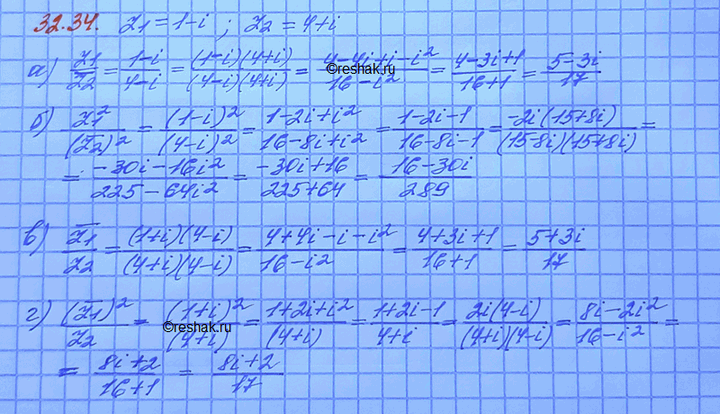 32.34. z₁ = 1-i ; z₂ = 4+i
а) z₁/z̄₂ = (1-i)/(4-i) = (1-i)(4+i)/(4-i)(4+i) = (4-4i+i-i²)/(16-i²) = (4-3i+1)/(16+1) = (5-3i)/17
©reshak.ru
б) z₁²/(z̄₂)² = (1-i)²/(4-i)² = (1-2i+i²)/(16-8i+i²) = (1-2i-1)/(16-8i-1) = -2i(15+8i)/(15-8i)(15+8i) =
= (-30i-16i²)/(225-64i²) = (-30i+16)/(225+64) = (16-30i)/289
в) z̄₁/z₂ = (1+i)(4-i)/(4+i)(4-i) = (4+4i-i-i²)/(16-i²) = (4+3i+1)/(16+1) = (5+3i)/17
г) (z̄₁)²/z₂ = (1+i)²/(4+i) = (1+2i+i²)/(4+i) = (1+2i-1)/(4+i) = 2i(4-i)/(4+i)(4-i) = (8i-2i²)/(16-i²) =
©reshak.ru
= (8i+2)/(16+1) = (8i+2)/17